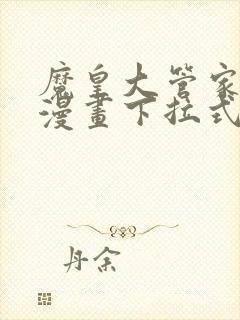 魔皇大管家
漫畫下拉式
丹余